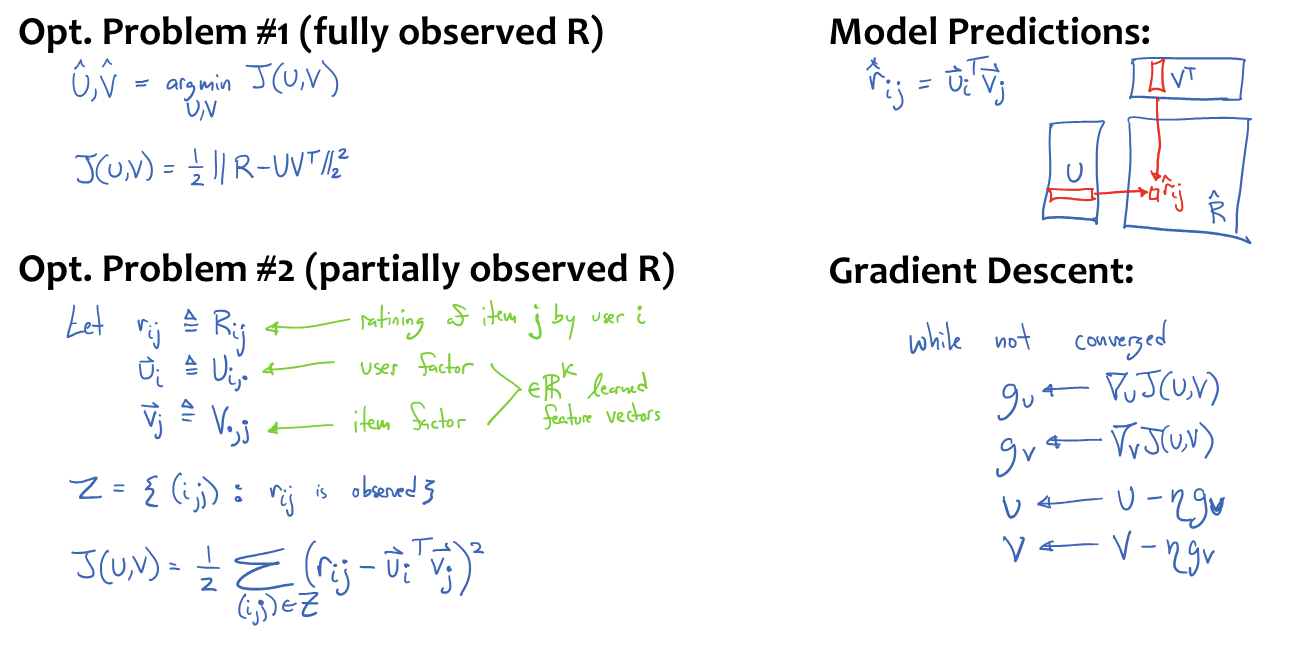 Opt. Problem #1 (fully observed R)
Û, V̂ = argmin J(U,V)
U,V
J(U,V) = ½ || R - UVᵀ ||₂²
Opt. Problem #2 (partially observed R)
Let r_ij ≜ R_ij ← ratining of item j by user i
u⃗_i ≜ U_i,· ← user factor
v⃗_j ≜ V_·,j ← item factor
∈ ℝᴷ learned
feature vectors
Z = { (i,j) : r_ij is observed }
J(U,V) = ½ Σ_(i,j)∈Z (r_ij - u⃗_iᵀ v⃗_j)²
Model Predictions:
r̂_ij = u⃗_iᵀ v⃗_j
Vᵀ
U
r̂_ij
R̂
Gradient Descent:
while not converged
g_U ← ∇_U J(U,V)
g_V ← ∇_V J(U,V)
U ← U - η g_U
V ← V - η g_V